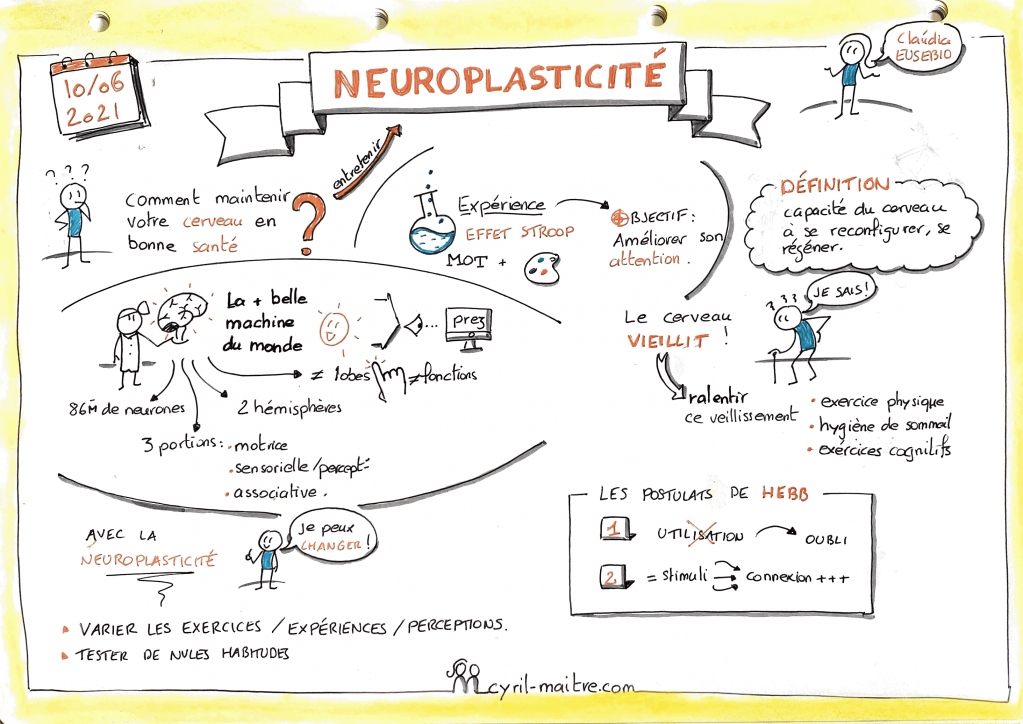 10/06
2021
NEUROPLASTICITÉ
Claúdia
EUSEBIO
? ? ?
Comment maintenir
votre cerveau en
bonne santé
?
entretenir
Expérience
EFFET STROOP
MOT +
OBJECTIF :
Améliorer son
attention .
DÉFINITION
capacité du cerveau
à se reconfigurer, se
régéner.
La + belle
machine
du monde
...
prez
≠ lobes
≠ fonctions
86M de neurones
2 hémisphères
3 portions :
• motrice
• sensorielle/percept°
• associative .
Le cerveau
VIEILLIT !
???
JE SAIS !
ralentir
ce veillissement
• exercice physique
• hygiène de sommeil
• exércices cognitifs
AVEC LA
NEUROPLASTICITÉ
Je peux
CHANGER !
VARIER LES EXERCICES / EXPÉRIENCES / PERCEPTIONS.
TESTER DE NVLES HABITUDES
LES POSTULATS DE HEBB
1 UTILISATION → OUBLI
2. = stimuli → connexion +++
cyril-maitre.com